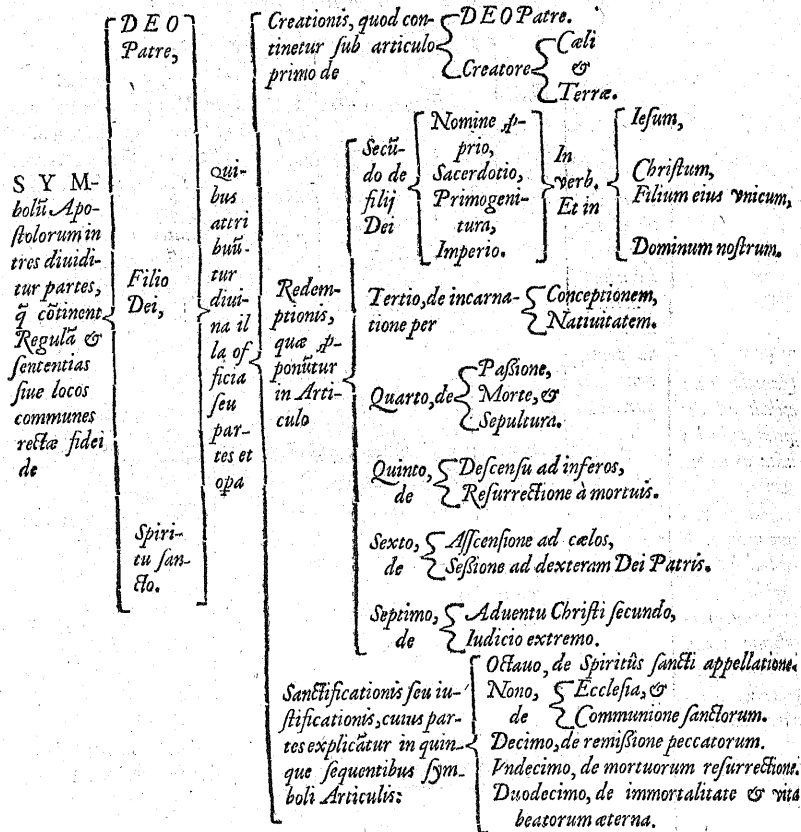 SYM-
bolū Apo-
stolorum in
tres diuidi-
tur partes,
q̃ cōtinent
Regulā &
sententias
siue locos
communes
rectæ fidei
de
DEO
Patre,
Filio
Dei,
Spiri-
tu san-
cto.
Qui-
bus
attri
buū-
tur
diui-
na il
la of
ficia
seu
par-
tes et
oꝑa
Creationis, quod con-
tinetur sub articulo
primo de
DEO Patre.
Creatore
Cæli
&
Terræ.
Redem-
ptionis,
quæ ꝓ-
ponūtur
in Arti-
culo
Secū-
do de
filij
Dei
Nomine ꝓ-
prio,
Sacerdotio,
Primogeni-
tura,
Imperio.
In
verb.
Et in
Iesum,
Christum,
Filium eius vnicum,
Dominum nostrum.
Tertio, de incarna-
tione per
Conceptionem,
Natiuitatem.
Quarto, de
Passione,
Morte, &
Sepultura.
Quinto,
de
Descensu ad inferos,
Resurrectione à mortuis.
Sexto,
de
Asscensione ad cælos,
Sessione ad dexteram Dei Patris.
Septimo,
de
Aduentu Christi secundo,
Iudicio extremo.
Sanctificationis seu iu-
stificationis, cuius par-
tes explicātur in quin-
que sequentibus sym-
boli Articulis:
Octauo, de Spiritûs sancti appellatione.
Nono,
de
Ecclesia, &
Communione sanctorum.
Decimo, de remissione peccatorum.
Vndecimo, de mortuorum resurrectione.
Duodecimo, de immortalitate & vita
beatorum æterna.